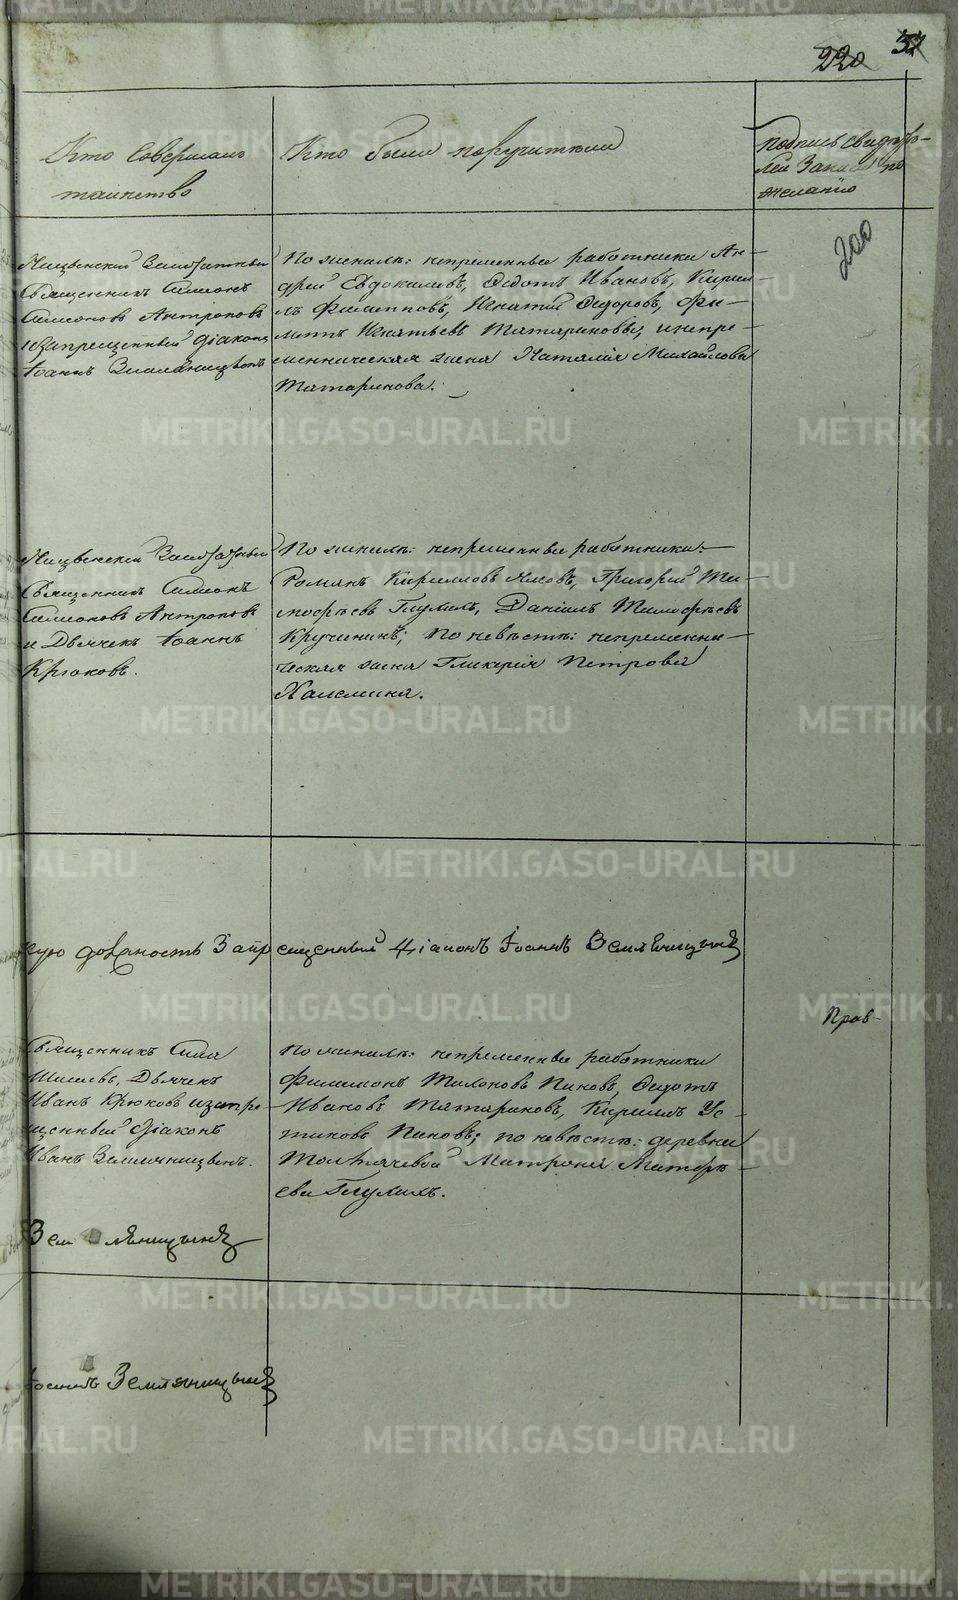 220 37
Кто совершалъ
таинство
Кто были поручители
Подпись свидѣте-
лей записи по
желанію
200
Священникъ Симеонъ
Симеоновъ Антроповъ
и запрещенный діаконъ
Іоаннъ Земляницынъ
По женихѣ: непременные работники Ан-
дрей Евдокимовъ, Ѳедотъ Ивановъ, Кирил-
лъ Филипповъ, Игнатій Ѳедоровъ, Фи-
липъ Игнатьевъ Татариновы, и непре-
менническая жена Наталія Михайлова
Татаринова.
Священникъ Симеонъ
Симеоновъ Антроповъ
и Дьячекъ Іоаннъ
Крюковъ.
По женихѣ: непременные работники:
Романъ Кирилловъ Григорій Ти-
моѳѣевъ Глухихъ, Даніилъ Тимоѳѣевъ
Кручининъ; по невѣстѣ: непременни-
ческая жена Гликерія Петрова
Халемина.
скую должность Запрещенный Діаконъ Іоаннъ Земляницынъ
Прав-
Священникъ Сила
Дьячекъ
Иванъ Крюковъ и запре-
щенный діаконъ
Иванъ Земляницынъ.
По женихѣ: непременные работники
Филимонъ Пановъ, Ѳедотъ
Ивановъ Татариновъ, Кириллъ Ус-
тиновъ Пановъ; по невѣстѣ: деревни
Толмачевой Матрона Матвѣ-
ева Глухихъ.
Земляницынъ
Іоаннъ Земляницынъ
METRIKI.GASO-URAL.RU